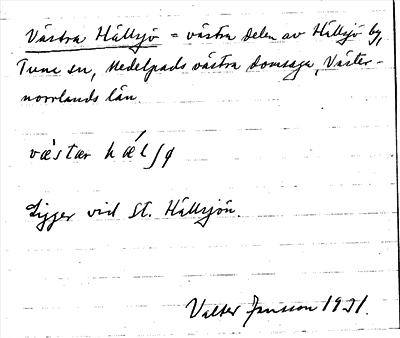 Västra Hällsjö = västra delen av Hällsjö by,
Tuna sn, Medelpads västra domsaga, Väster-
norrlands län.
væ̀star hǽlʃø
Ligger vid St. Hällsjön.
Valter Jansson 1931.